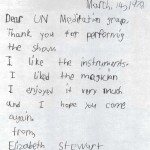 March, 19,
Dear UN Meditation group,
Thank you for performing
the show.
I like the instruments.
I liked the magician
I enjoyed it very much
and I hope you come
again.
from,
Elizabeth Stewart